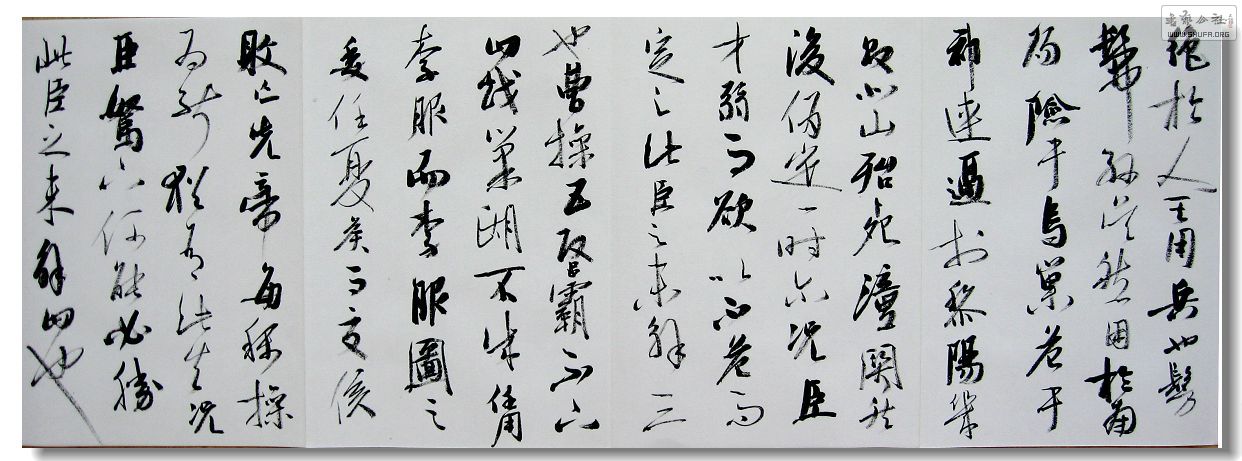 書藝公社
WWW.SHUFA.ORG
絕於人其用兵也髣
髴孫吳然困於南
陽險于烏巢危于
祁連逼於黎陽幾
敗北山殆死潼關然
後偽定一時尔況臣
才弱而欲以不危而
定之此臣之未解三
也曹操五攻昌霸不下
四越巢湖不成任用
李服而李服圖之
委任夏侯而夏侯
敗亡先帝每稱操
為能猶有此失況
臣駑下何能必勝
此臣之未解四也